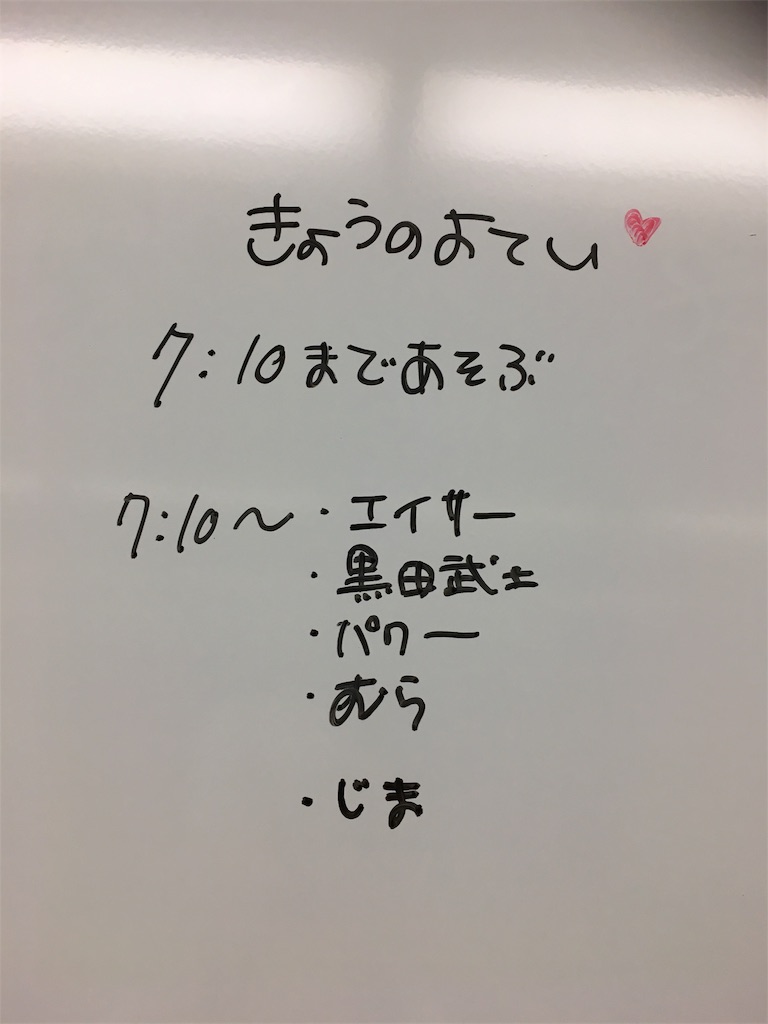 きょうのよてい
7:10まであそぶ
7:10〜・エイサー
・黒田武士
・パワー
・むら
・じま